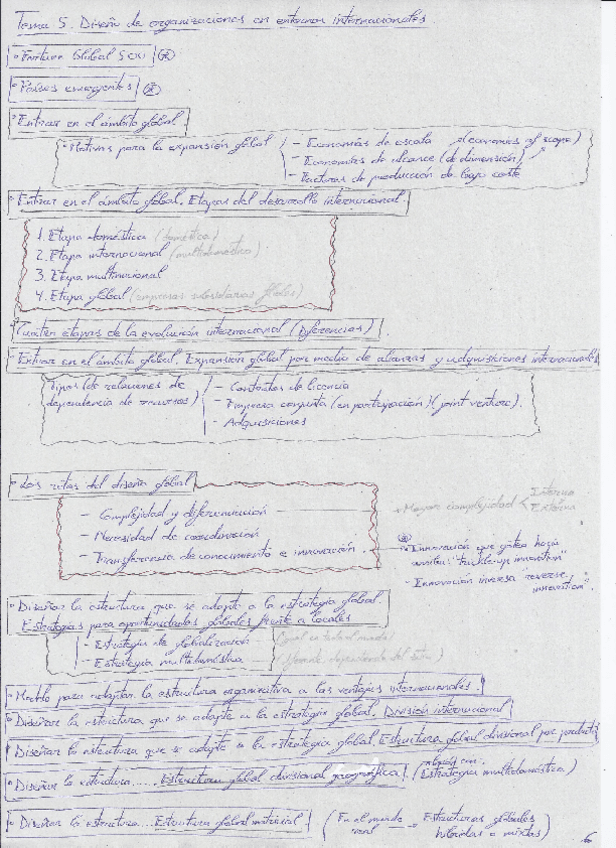 Tema 5. Diseño de organizaciones en entornos internacionales.
• Fortune Global 500
• Países emergentes
• Entrar en el ámbito global.
• Motivos para la expansión global
- Economías de escala
- Economías de alcance (de dimensión) (economies of scope)
- Factores de producción de bajo coste
• Entrar en el ámbito global. Etapas del desarrollo internacional.
1. Etapa doméstica (doméstica)
2. Etapa internacional (multidoméstica)
3. Etapa multinacional
4. Etapa global (empresas subsidiarias globales)
• Cuatro etapas de la evolución internacional (Diferencias)
• Entrar en el ámbito global. Expansión global por medio de alianzas y adquisiciones internacionales
Tipos (de relaciones de dependencia de recursos)
- Contratos de licencia
- Empresa conjunta (en participación) (joint venture).
- Adquisiciones
• Los retos del diseño global
- Complejidad y diferenciación
→ Mayor complejidad < Interna Externa
- Necesidad de coordinación
- Transferencia de conocimiento e innovación.
- Innovación que gotea hacia arriba: "trickle-up innovation"
- Innovación inversa "reverse innovation".
• Diseñar la estructura que se adapte a la estrategia global.
Estrategias para oportunidades globales frente a locales
- Estrategia de globalización (igual en todo el mundo)
- Estrategia multidoméstica
• Modelo para adaptar la estructura organizativa a las ventajas internacionales.
• Diseñar la estructura que se adapte a la estrategia global. División internacional
• Diseñar la estructura que se adapte a la estrategia global. Estructura global divisional por productos
• Diseñar la estructura..... Estructura global divisional geográfica. (Estrategia multidoméstica)
• Diseñar la estructura... Estructura global matricial. (En el mundo real → Estructuras globales híbridas o mixtas)
6